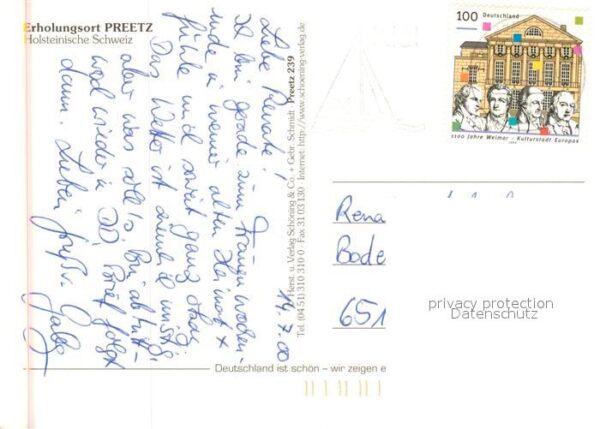 Erholungsort PREETZ
Holsteinische Schweiz
14.7.00
Liebe Renate!
Ich bin gerade zum Trauen
in meiner alten Heimat +
fühle mich soweit ganz
Das Wetter ist ziemlich mistig,
aber was soll's. Bin ab
mal wieder in DD, Brief folgt
dann. Lieben Gruß
Gabi
Herst. u. Verlag Schöning & Co. + Gebr. Schmidt Preetz 239
Tel. (04 51) 310 310 0 · Fax 31 03 130 · Internet: http://www.schoening-verlag.de
Deutschland ist schön – wir zeigen e
100 Deutschland
1100 Jahre Weimar - Kulturstadt Europas
Rena
Bode
651
privacy protection
Datenschutz